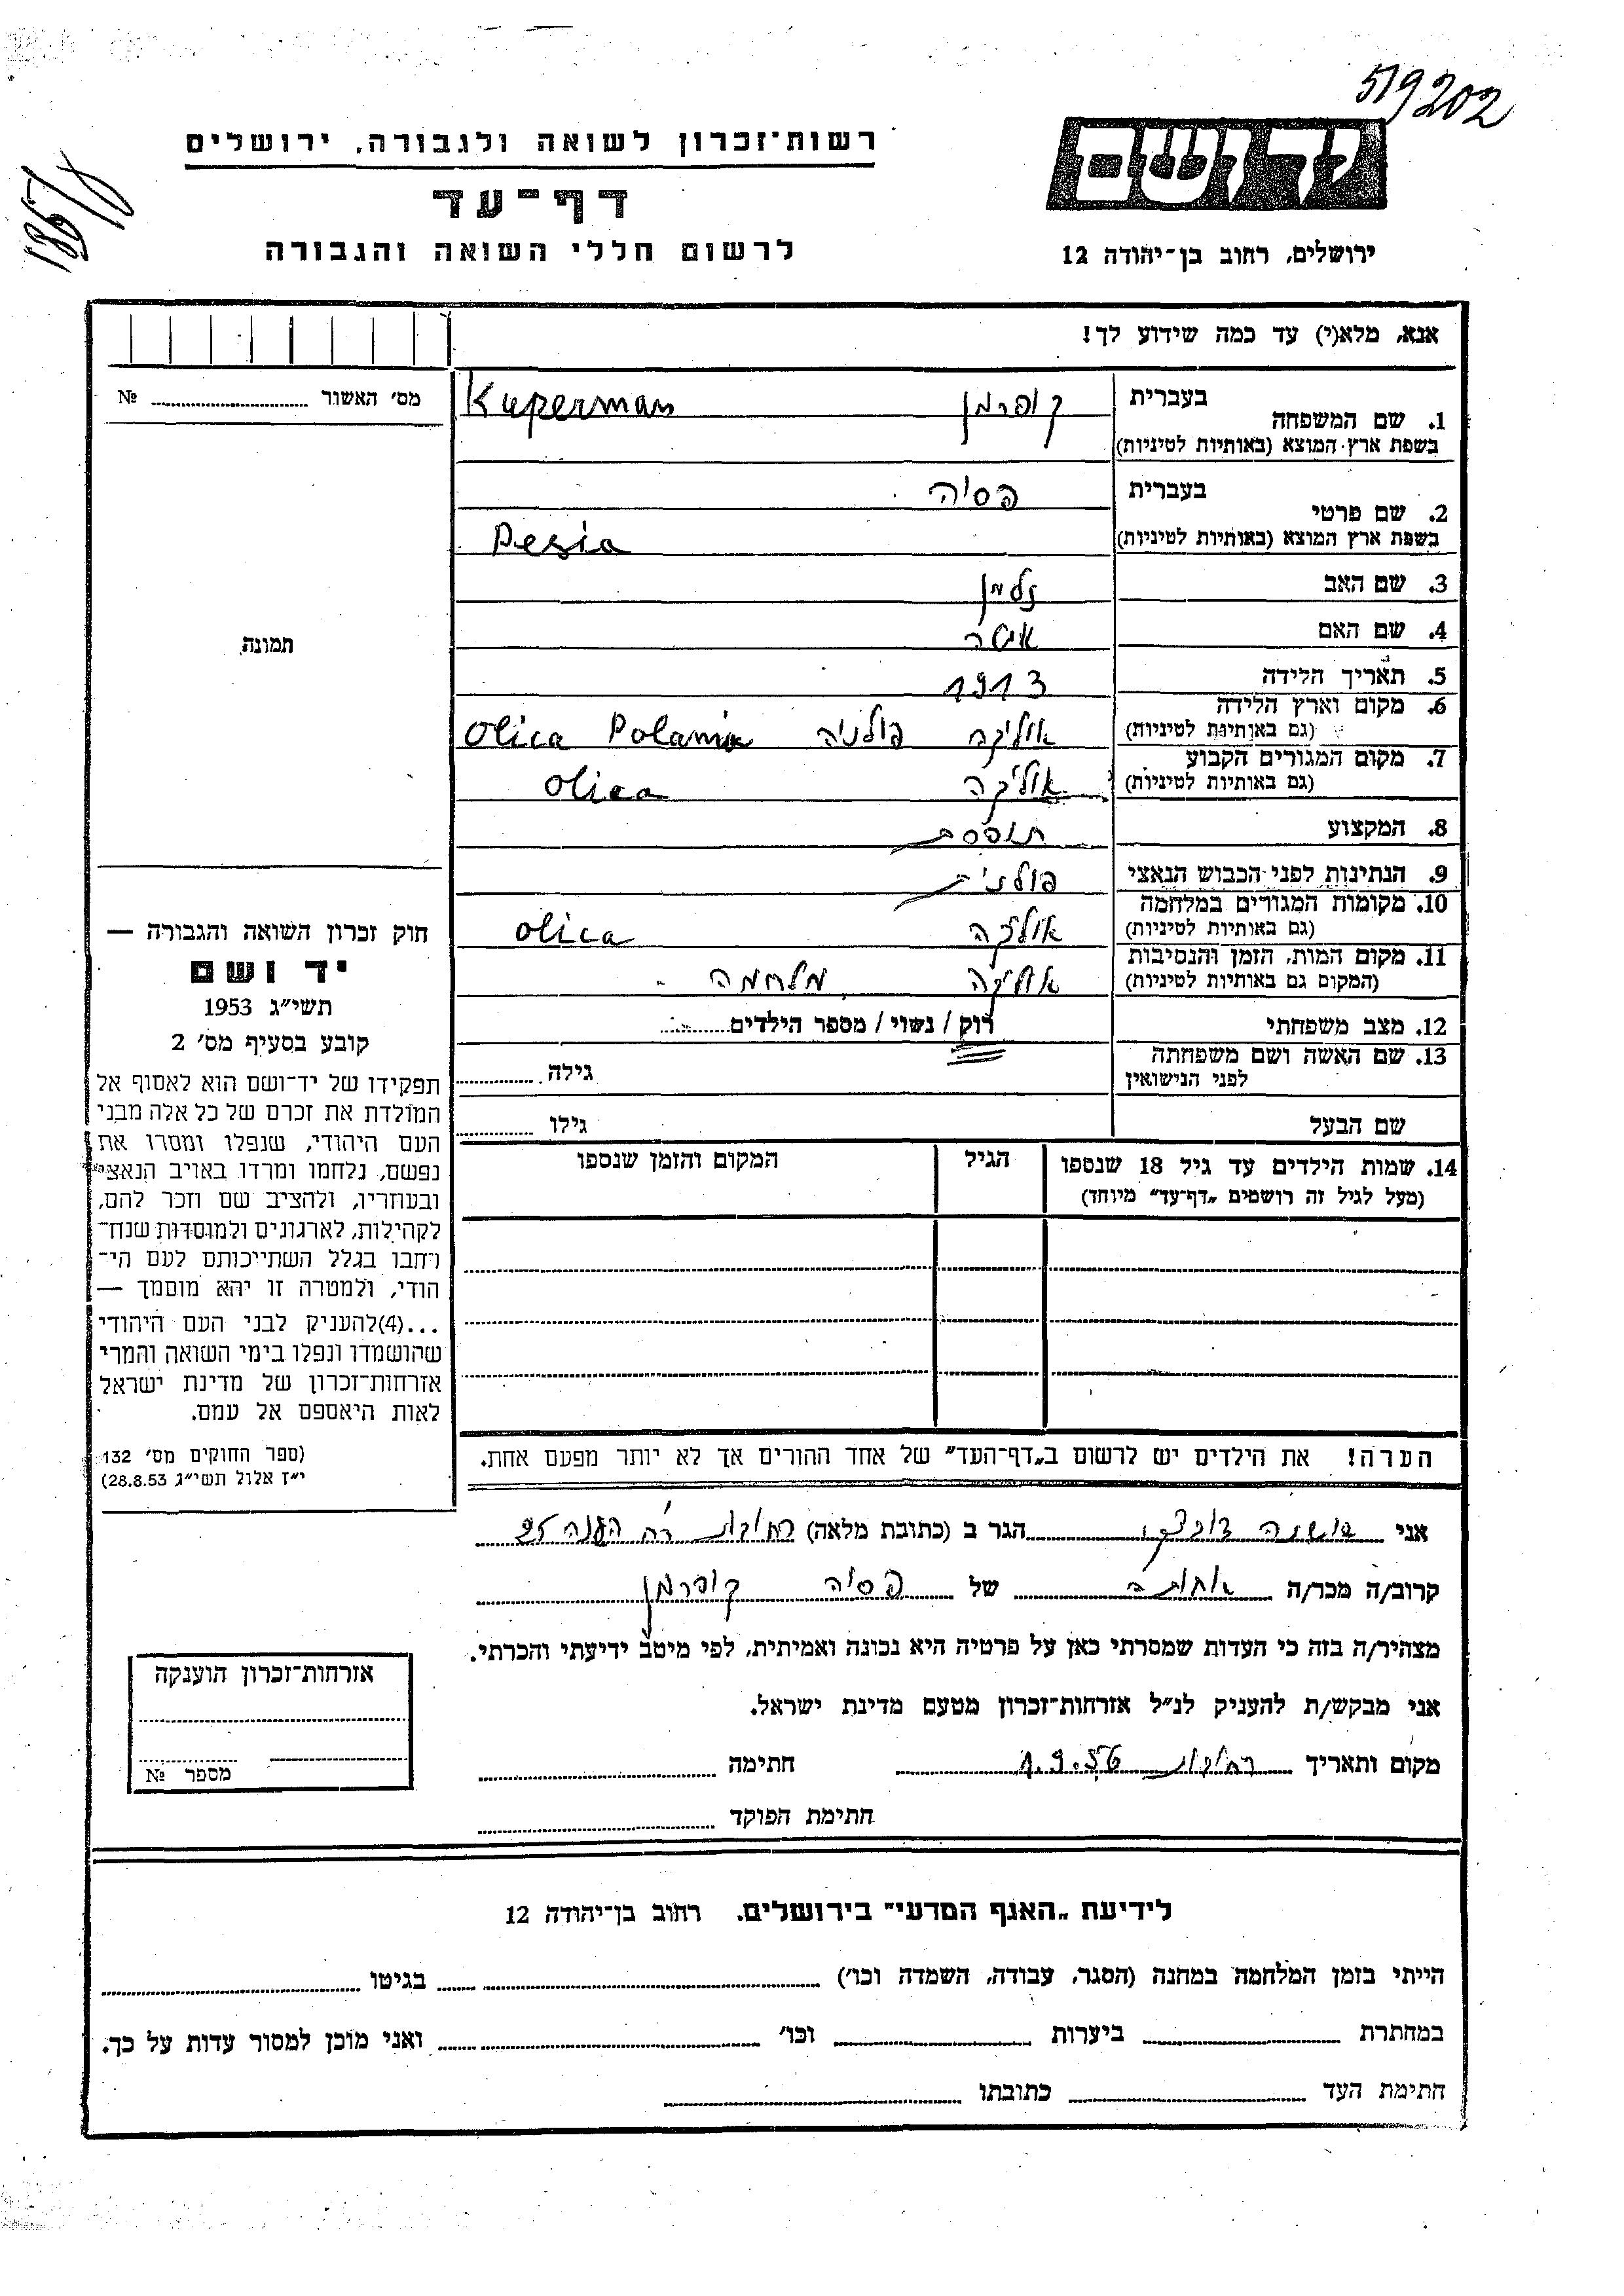 519202
רשות־זכרון לשואה ולגבורה, ירושלים
דף־עד
לרשום חללי השואה והגבורה
יד ושם
ירושלים, רחוב בן־יהודה 12
אנא, מלא(י) עד כמה שידוע לך!
מס׳ האשור № 
1. שם המשפחה בעברית קופרמן Kuperman
בשפת ארץ המוצא (באותיות לטיניות)
2. שם פרטי בעברית פסיה
בשפת ארץ המוצא (באותיות לטיניות) Pesia
3. שם האב זלמן
4. שם האם
5. תאריך הלידה 1913
6. מקום וארץ הלידה (גם באותיות לטיניות) אוליקה פולניה Olica Polania
7. מקום המגורים הקבוע (גם באותיות לטיניות) אוליקה Olica
8. המקצוע תופסת
9. הנתינות לפני הכבוש הנאצי פולנית
10. מקומות המגורים במלחמה (גם באותיות לטיניות) אוליקה Olica
11. מקום המות, הזמן והנסיבות (המקום גם באותיות לטיניות) אוליקה מלחמה
12. מצב משפחתי רוק / נשוי / מספר הילדים
13. שם האשה ושם משפחתה לפני הנישואין גילה
שם הבעל גילו
14. שמות הילדים עד גיל 18 שנספו (מעל לגיל זה רושמים „דף־עד״ מיוחד) הגיל המקום והזמן שנספו
תמונה
חוק זכרון השואה והגבורה —
יד ושם
תשי״ג 1953
קובע בסעיף מס׳ 2
תפקידו של יד־ושם הוא לאסוף אל
המולדת את זכרם של כל אלה מבני
העם היהודי, שנפלו ומסרו את
נפשם, נלחמו ומרדו באויב הנאצי
ובעוזריו, ולהציב שם וזכר להם,
לקהילות, לארגונים ולמוסדות שנח־
רחבו בגלל השתייכותם לעם הי־
הודי, ולמטרה זו יהא מוסמך —
...(4)להעניק לבני העם היהודי
שהושמדו ונפלו בימי השואה והמרי
אזרחות־זכרון של מדינת ישראל
לאות היאספם אל עמם.
(ספר החוקים מס׳ 132
י״ז אלול תשי״ג 28.8.53)
הערה! את הילדים יש לרשום ב„דף־העד״ של אחד ההורים אך לא יותר מפעם אחת.
אני שושנה הגר ב (כתובת מלאה) רחובות רח ההגנה 25
קרוב/ה מכר/ה אחותה של פסיה קופרמן
מצהיר/ה בזה כי העדות שמסרתי כאן על פרטיה היא נכונה ואמיתית, לפי מיטב ידיעתי והכרתי.
אני מבקש/ת להעניק לנ״ל אזרחות־זכרון מטעם מדינת ישראל.
מקום ותאריך רחובות 1.9.56 חתימה
חתימת הפוקד
אזרחות־זכרון הוענקה
מספר №
לידיעת „האגף המדעי״ בירושלים, רחוב בן־יהודה 12
הייתי בזמן המלחמה במחנה (הסגר, עבודה, השמדה וכו׳) בגיטו
במחתרת ביערות וכו׳ ואני מוכן למסור עדות על כך.
חתימת העד כתובתו